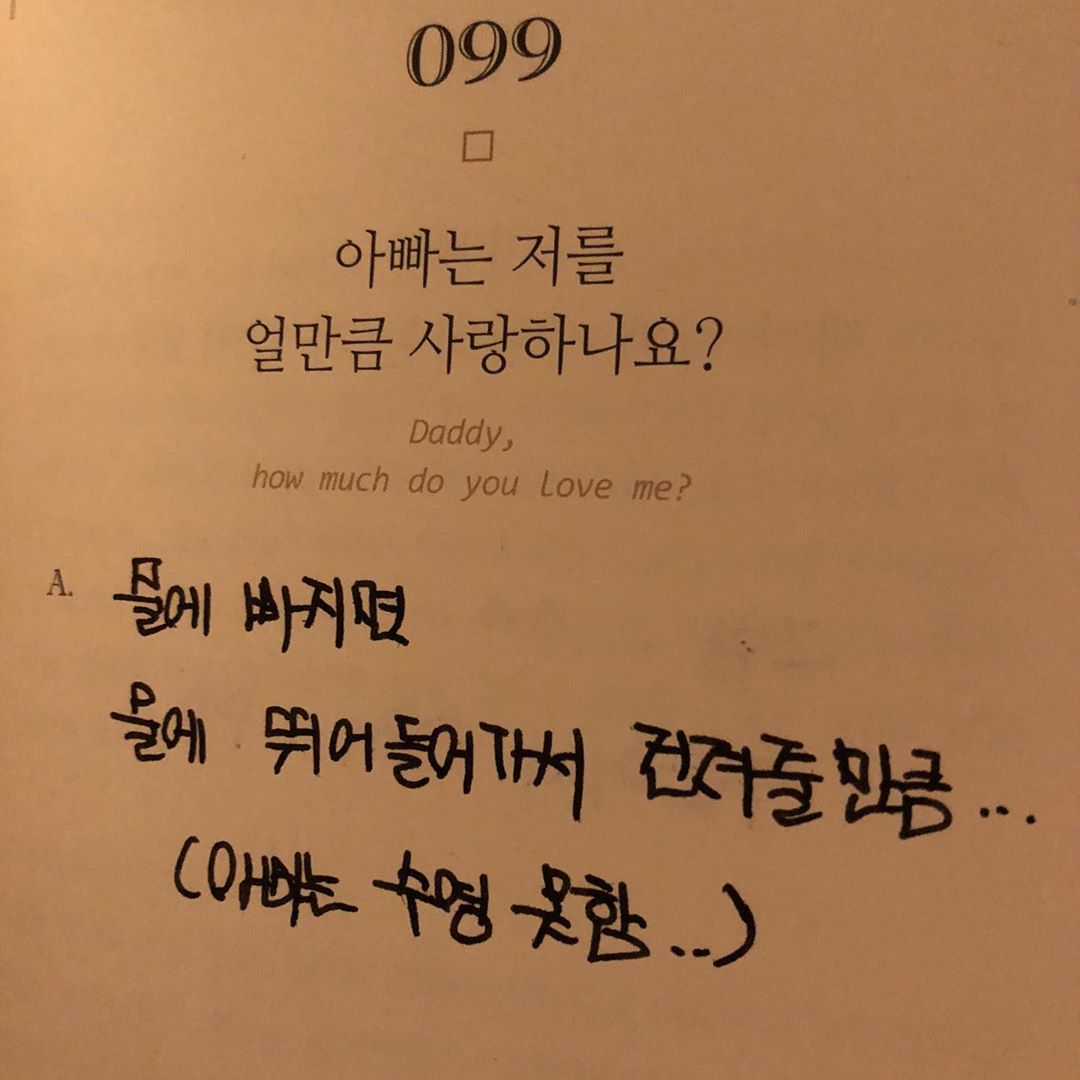 099
아빠는 저를
얼만큼 사랑하나요?
Daddy,
how much do you love me?
A. 물에 빠지면
물에 뛰어들어가서 건져줄만큼...
(아빠는 수영 못함...)